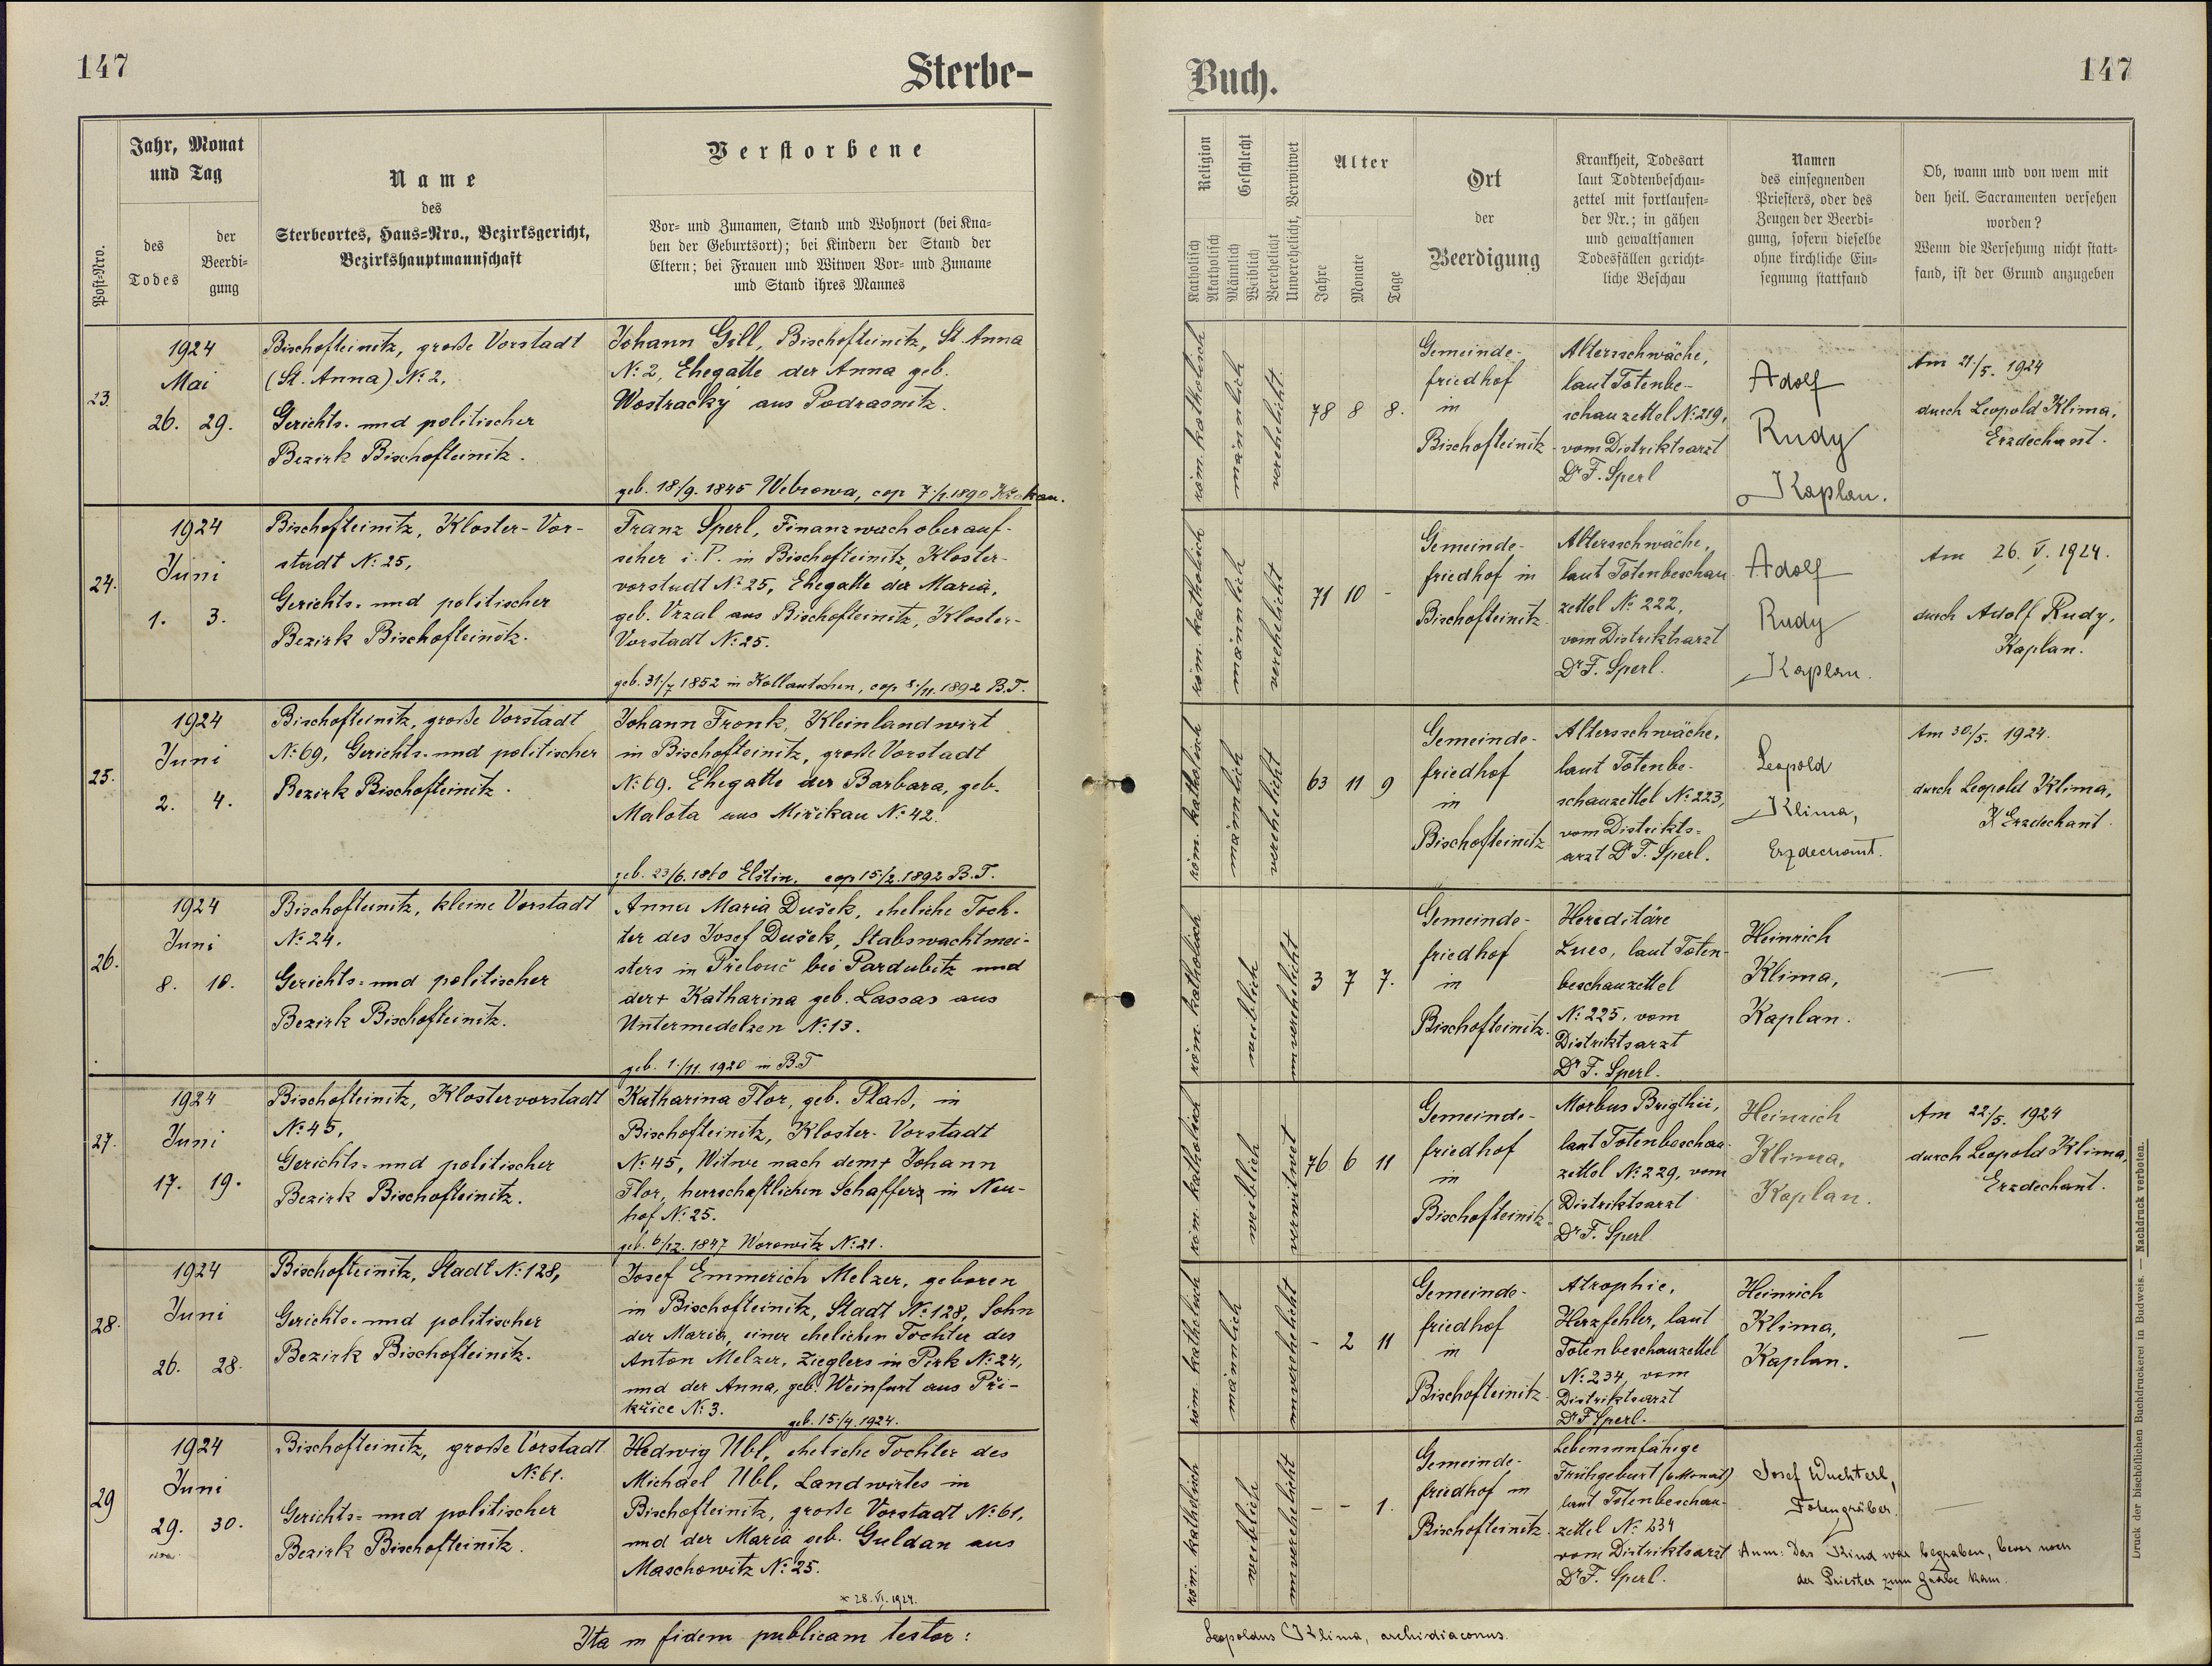 147
Sterbe-
Buch.
147
Post-Nro.
Jahr, Monat
und Tag
des
Todes
der
Beerdi-
gung
Name
des
Sterbeortes, Haus-Nro., Bezirksgericht,
Bezirkshauptmannschaft
Verstorbene
Vor- und Zunamen, Stand und Wohnort (bei Kna-
ben der Geburtsort); bei Kindern der Stand der
Eltern; bei Frauen und Witwen Vor- und Zuname
und Stand ihres Mannes
Religion
Katholisch
Akatholisch
Geschlecht
Männlich
Weiblich
Verehelicht
Unverehelicht, Verwitwet
Alter
Jahre
Monate
Tage
Ort
der
Beerdigung
Krankheit, Todesart
laut Todtenbeschau-
zettel mit fortlaufen-
der Nr.; in gähen
und gewaltsamen
Todesfällen gericht-
liche Beschau
Namen
des einsegnenden
Priesters, oder des
Zeugen der Beerdi-
gung, sofern dieselbe
ohne kirchliche Ein-
segnung stattfand
Ob, wann und von wem mit
den heil. Sacramenten versehen
worden?
Wenn die Versehung nicht statt-
fand, ist der Grund anzugeben
23.
1924
Mai
26. 29.
Bischofteinitz, große Vorstadt
(St. Anna) No 2.
Gerichts- und politischer
Bezirk Bischofteinitz.
Johann Gill, Bischofteinitz, St. Anna
No 2, Ehegatte der Anna geb.
Wostracký aus Podrasnitz.
geb. 18./9. 1845 Webrowa, cop 7./1. 1890
röm. katholisch
männlich
verehelicht
78 8 8.
Gemeinde-
friedhof
in
Bischofteinitz
Altersschwäche,
laut Totenbe-
schauzettel No 219,
vom Distriktsarzt
Dr F. Sperl
Adolf
Rudy
Kaplan.
Am 21/5. 1924
durch Leopold Klima,
Erzdechant.
24.
1924
Juni
1. 3.
Bischofteinitz, Kloster-Vor-
stadt No 25,
Gerichts- und politischer
Bezirk Bischofteinitz.
Franz Sperl, Finanzwachoberauf-
seher i. P. in Bischofteinitz, Kloster-
vorstadt No 25, Ehegatte der Maria,
geb. Vrzal aus Bischofteinitz, Kloster-
Vorstadt No 25.
geb. 31./7 1852 in Kollautschen, cop 8./11. 1892 B.T.
röm. katholisch
männlich
verehelicht
71 10 -
Gemeinde-
friedhof in
Bischofteinitz.
Altersschwäche,
laut Totenbeschau
zettel No 222,
vom Distriktsarzt
Dr F. Sperl.
Adolf
Rudy
Kaplan.
Am 26. V. 1924.
durch Adolf Rudy,
Kaplan.
25.
1924
Juni
2. 4.
Bischofteinitz, große Vorstadt
No 69, Gerichts- und politischer
Bezirk Bischofteinitz.
Johann Fronk, Kleinlandwirt
in Bischofteinitz, große Vorstadt
No 69, Ehegatte der Barbara, geb.
Malota aus Miřikau No 42.
geb. 23/6. 1860 Elštin, cop 15/2. 1892 B.T.
röm. katholisch
männlich
verehelicht
63 11 9
Gemeinde-
friedhof
in
Bischofteinitz
Altersschwäche,
laut Totenbe-
schauzettel No 223,
vom Distrikts-
arzt Dr F. Sperl.
Leopold
Klima,
Erzdechant.
Am 30./5. 1924.
durch Leopold Klima,
Erzdechant.
26.
1924
Juni
8. 10.
Bischofteinitz, kleine Vorstadt
No 24.
Gerichts- und politischer
Bezirk Bischofteinitz.
Anna Maria Dušek, eheliche Toch-
ter des Josef Dušek, Stabswachtmei-
sters in Přelouč bei Pardubitz und
der + Katharina geb. Lassas aus
Untermedelzen No 13.
geb. 1./11. 1920 in B.T
röm. katholisch
weiblich
unverehelicht
3 7 7.
Gemeinde-
friedhof
in
Bischofteinitz.
Hereditäre
Lues, laut Toten-
beschauzettel
No 225, vom
Distriktsarzt
Dr F. Sperl.
Heinrich
Klima,
Kaplan.
—
27.
1924
Juni
17. 19.
Bischofteinitz, Klostervorstadt
No 45,
Gerichts- und politischer
Bezirk Bischofteinitz.
Katharina Flor, geb. Plaß, in
Bischofteinitz, Kloster-Vorstadt
No 45, Witwe nach dem + Johann
Flor, herrschaftlichen Schaffers in Neu-
hof No 25.
geb. 6/12. 1847 Worowitz No 21.
röm. katholisch
weiblich
verwitwet
76 6 11
Gemeinde-
friedhof
in
Bischofteinitz.
Morbus Brigthii,
laut Totenbeschau-
zettel No 229, vom
Distriktsarzt
Dr F. Sperl
Heinrich
Klima,
Kaplan.
Am 22/5. 1924
durch Leopold Klima,
Erzdechant.
28.
1924
Juni
26. 28.
Bischofteinitz, Stadt No 128,
Gerichts- und politischer
Bezirk Bischofteinitz.
Josef Emmerich Melzer, geboren
in Bischofteinitz, Stadt No 128, Sohn
der Maria, einer ehelichen Tochter des
Anton Melzer, Zieglers in Pirk No 24,
und der Anna, geb. Weinfurt aus Při-
křice No 3.
geb. 15./4. 1924.
röm. katholisch
männlich
unverehelicht
- 2 11
Gemeinde-
friedhof
in
Bischofteinitz.
Atrophie,
Herzfehler, laut
Totenbeschauzettel
No 234, vom
Distriktsarzt
Dr F Sperl.
Heinrich
Klima,
Kaplan.
—
29
1924
Juni
29. 30.
Bischofteinitz, große Vorstadt
No 61.
Gerichts- und politischer
Bezirk Bischofteinitz.
Hedwig Ubl, eheliche Tochter des
Michael Ubl, Landwirtes in
Bischofteinitz, große Vorstadt No 61,
und der Maria geb. Guldan aus
Maschowitz No 25.
* 28. VI. 1924.
röm. katholisch
weiblich
unverehelicht
- - 1.
Gemeinde-
friedhof in
Bischofteinitz.
Lebensunfähige
Frühgeburt (6 Monat)
laut Totenbeschau-
zettel No 234
vom Distriktsarzt
Dr F. Sperl.
Josef Wuchterl,
Totengräber.
Anm: Das Kind war begraben, bevor noch
der Priester zum Grabe kam.
—
Ita in fidem publicam testor:
Leopoldus Klima, archidiaconus.
Druck der bischöflichen Buchdruckerei in Budweis. — Nachdruck verboten.